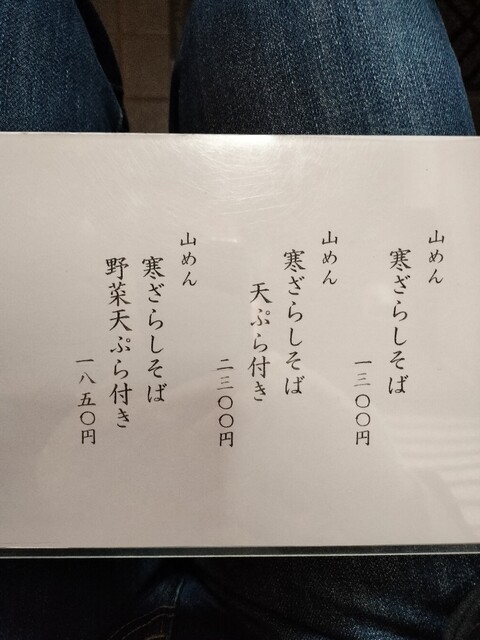 山めん
寒ざらしそば
一三〇〇円
山めん
寒ざらしそば
天ぷら付き
二三〇〇円
山めん
寒ざらしそば
野菜天ぷら付き
一八五〇円